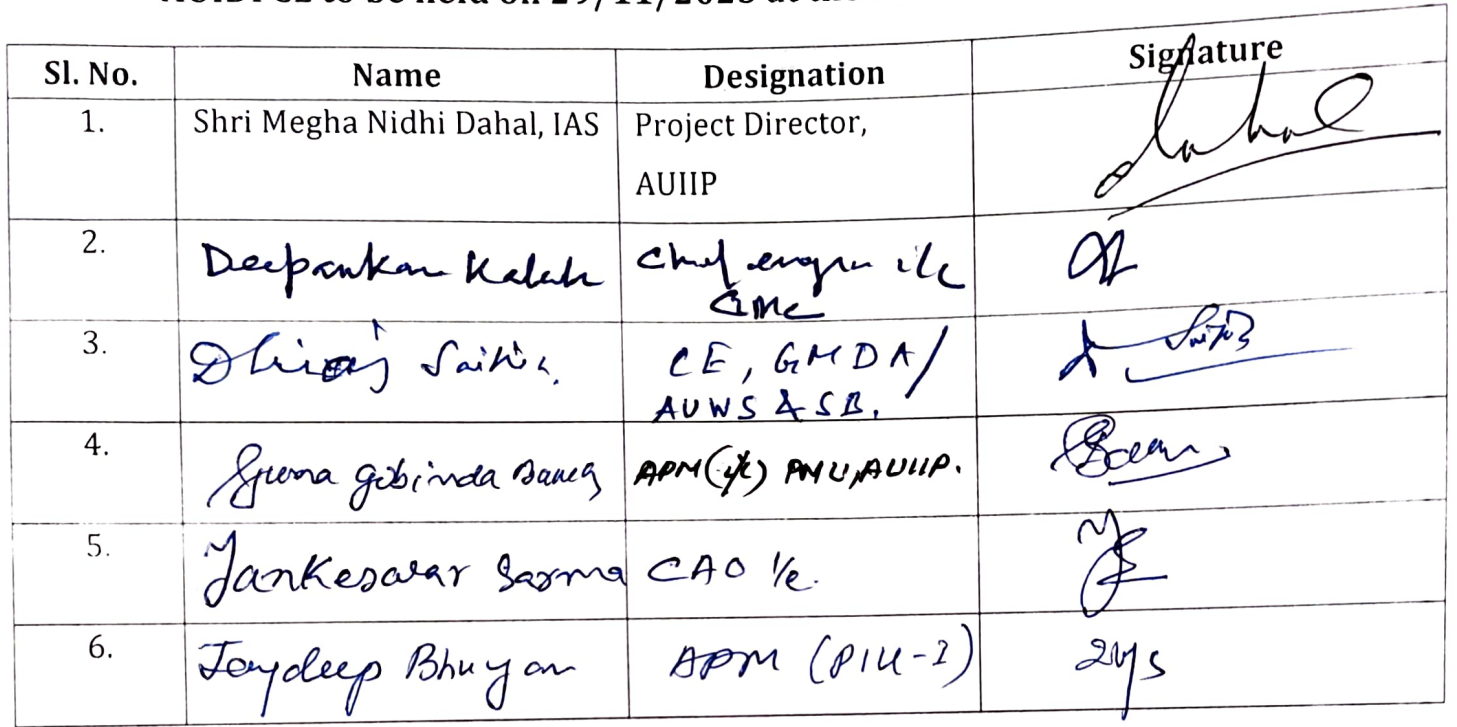 to be held on 29/11/2023 at
Sl. No. Name Designation Signature
1. Shri Megha Nidhi Dahal, IAS Project Director,
AUIIP
Dahal
2. Deepankar Kalah Chief engr i/c
GMC
3. Dhiraj Saikia. CE, GMDA/
AUWS & SB.
4. Gobinda APM (i/c) PMU, AUIIP.
5. Jankeswar Sarma CAO i/c.
6. Joydeep Bhuyan APM (PIU-I)